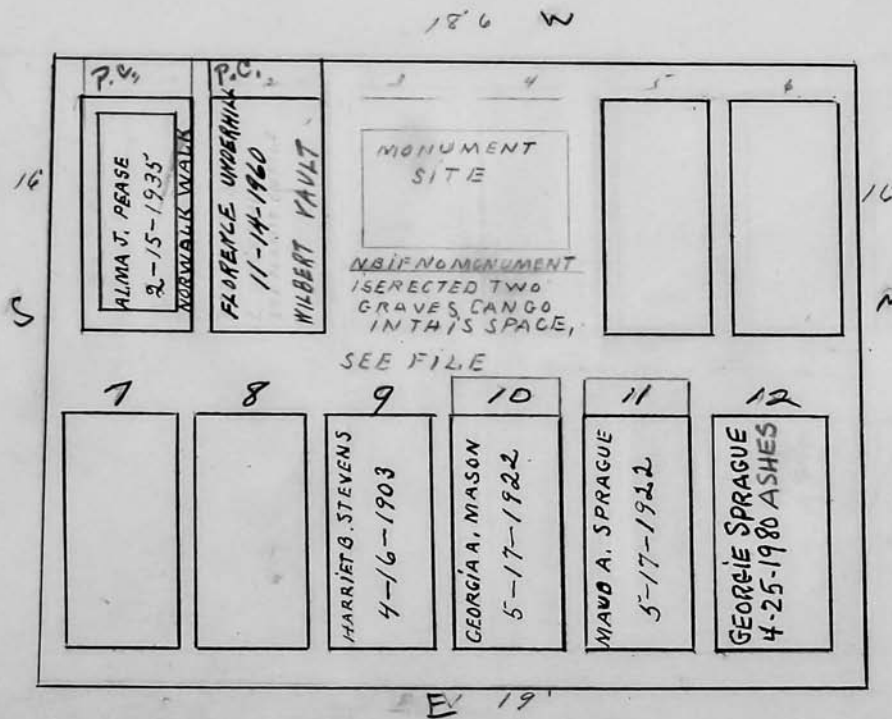 18'6 W
P.C. 1
P.C. 2
3
4
5
6
16'
ALMA J. PEASE
2-15-1935
NORWALK WALK
FLORENCE UNDERHILL
11-14-1960
WILBERT VAULT
MONUMENT
SITE
N.B. IF NO MONUMENT
IS ERECTED TWO
GRAVES CAN GO
IN THIS SPACE,
SEE FILE
16
S
N
7
8
9
10
11
12
HARRIET B. STEVENS
4-16-1903
GEORGIA A. MASON
5-17-1922
MAUD A. SPRAGUE
5-17-1922
GEORGIE SPRAGUE
4-25-1980 ASHES
E 19'